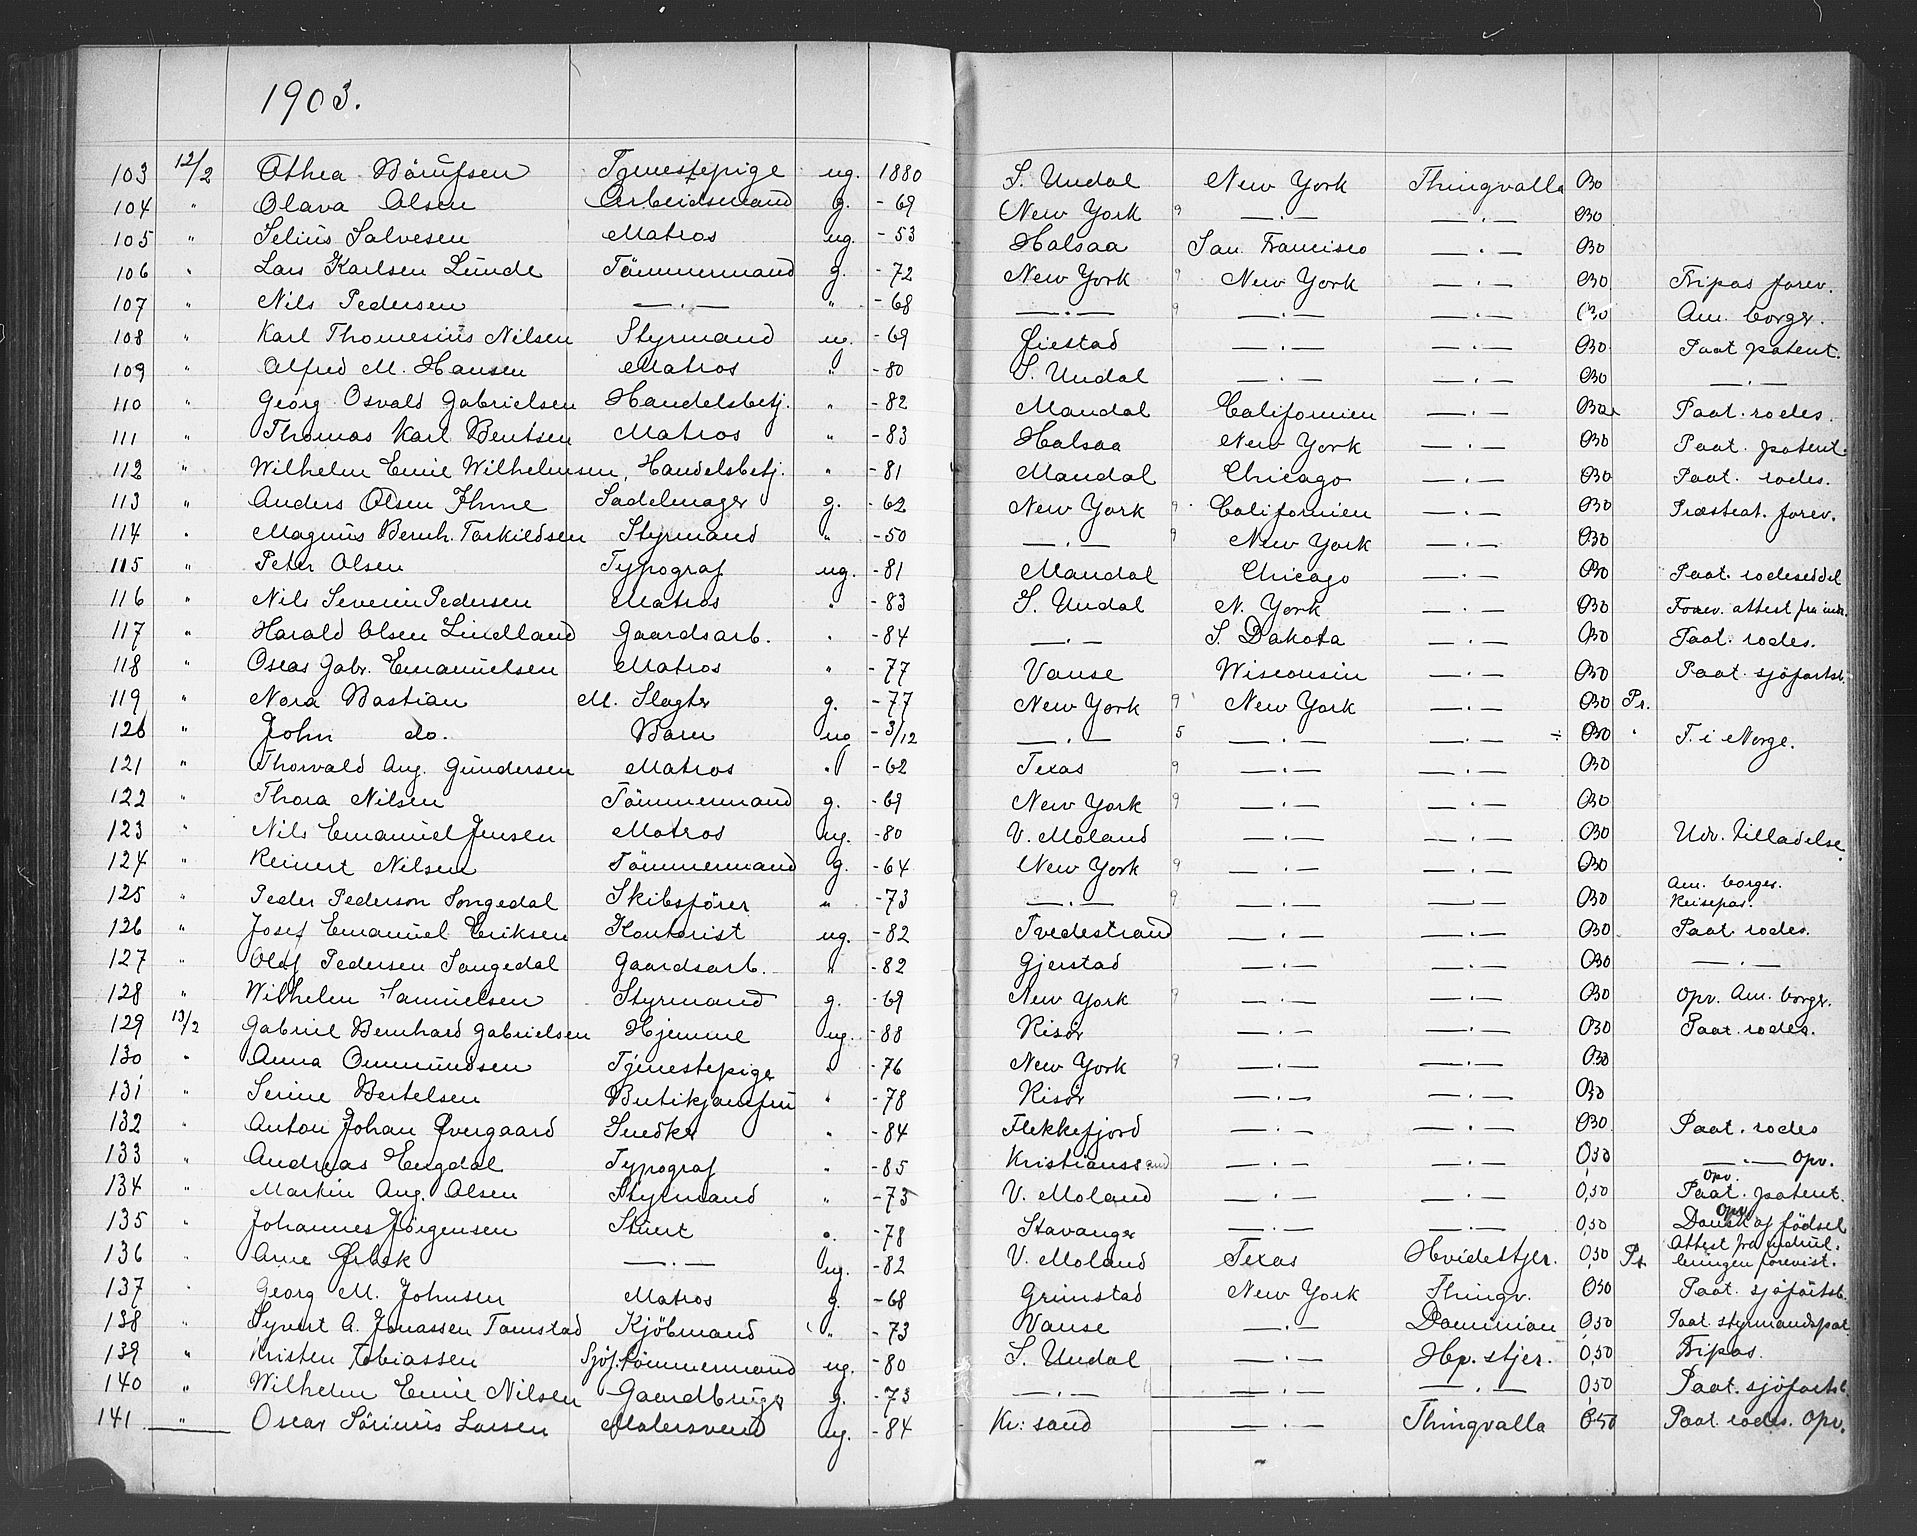 1903.
103 12/2 Othea Börufsen Tjenestepige ug. 1880 S. Undal New York Thingvalla 030
104 " Olava Olsen Arbeidsmand g. -69 New York 9 —.— —.— 030
105 " Selius Salvesen Matros ug. -53 Halsaa San Francisco —.— 030
106 " Lars Karlsen Lunde Tömmermand g. -72 New York 9 New York —.— 030 Fripas forev.
107 " Nils Pedersen —.— " -68 —.— 9 —.— —.— 030 Am. borger.
108 " Karl Thomesius Nilsen Styrmand ug. -69 Øiestad —.— —.— 030 Paat. patent.
109 " Alfred M. Hansen Matros " -80 S. Undal —.— —.— 030 —.—
110 " Georg Osvald Gabrielsen Handelsbetj. " -82 Mandal Californien —.— 030 Paat. rodes.
111 " Thomas Karl Bentsen Matros " -83 Halsaa New York —.— 030 Paat. patent.
112 " Wilhelm Emil Wilhelmsen, Handelsbetj. " -81 Mandal Chicago —.— 030 Paat. rodes.
113 " Anders Olsen Ihme Sadelmager g. -62 New York 9 Californien —.— 030 Præsteat. forev.
114 " Magnus Bernh. Torkildsen Styrmand " -50 —.— 9 New York —.— 030
115 " Peter Olsen Typograf ug. -81 Mandal Chicago —.— 030 Paat. rodeseddel
116 " Nils Severin Pedersen Matros " -83 S. Undal N. York —.— 030 Forev. attest fra
117 " Harald Olsen Lindland Gaardsarb. " -84 —.— S Dakota —.— 030 Paat. rodes.
118 " Oscar Gabr. Emanuelsen Matros " -77 Vanse Wisconsin —.— 030 Paat. sjöfartsb.
119 " Nora Bastian M. Slagter g. -77 New York 9 New York —.— 030 Pr.
120 " John do. Barn ug -3/12 —.— 5 —.— —.— ÷ 030 " F. i Norge.
121 " Thorvald Aug. Gundersen Matros " -62 Texas 9 —.— —.— 030
122 " Thora Nilsen Tömmermand g. -69 New York 9 —.— —.— 030
123 " Nils Emanuel Jensen Matros ug. -80 V. Moland —.— —.— 030 Udv. tilladelse.
124 " Reinert Nilsen Tömmermand g. -64 New York 9 —.— —.— 030
125 " Peder Pederson Songedal Skibsförer " -73 —.— 9 —.— —.— 030 Am. borger. Reisepas.
126 " Josef Emanuel Eriksen Kontorist ug. -82 Tvedestrand —.— —.— 030 Paat. rodes.
127 " Olaf Pedersen Songedal Gaardsarb. " -82 Gjerstad —.— —.— 030 —.—
128 " Wilhelm Samuelsen Styrmand g. -69 New York 9 —.— —.— 030 Opv. Am. borger.
129 13/2 Gabriel Bernhard Gabrielsen Hjemme ug. -88 Risör —.— —.— 030 Paat. rodes.
130 " Anna Ommundsen Tjenestepige " -76 New York 9 —.— —.— 030
131 " Serine Bertelsen Butikjomfru " -78 Risör —.— —.— 030
132 " Anton Johan Øvergaard Snedker " -84 Flekkefjord —.— —.— 030 Paat. rodes
133 " Andreas Engdal Typograf " -85 Kristianssand —.— —.— 030 —.— Opv.
134 " Martin Aug. Olsen Styrmand " -73 V. Moland —.— —.— 0,50 Opv. Paat. patent.
135 " Johannes Jörgensen Stuert " -78 Stavanger —.— —.— 0,50 Opv. Dansk af födsel
136 " Ane Ørbek —.— ug. -82 V. Moland Texas Hvidestjer. 0,50 Pr. Attest fra indrul. leringen forevist.
137 " Georg M. Johnsen Matros g. -68 Grimstad New York Thingv. 030 Paat. sjöfartsb.
138 " Syvert A. Jonassen Tamstad Kjöbmand " -73 Vanse —.— Dominion 050 Paat. styrmandspat
139 " Kristen Tobiassen Sjöf. tömmermand ug. -80 S. Undal —.— Hp. stjer. 0,50 Fripas.
140 " Wilhelm Emil Nilsen Gaardbruger g. -73 —.— —.— —.— 050 Paat. sjöfartsb.
141 " Oscar Sörinus Larsen Malersvend ug. -84 Kr: sand —.— Thingvalla 050 Paat. rodes. Opv.